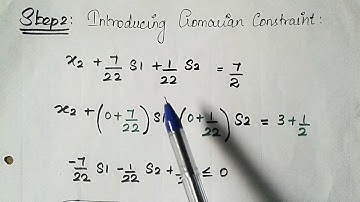 Step2: Introducing Gomarian Constraint:
x2 + 7/22 S1 + 1/22 S2 = 7/2
x2 + (0+7/22) S1 (0+1/22) S2 = 3+1/2
-7/22 S1 - 1/22 S2 + 1/ ≤ 0